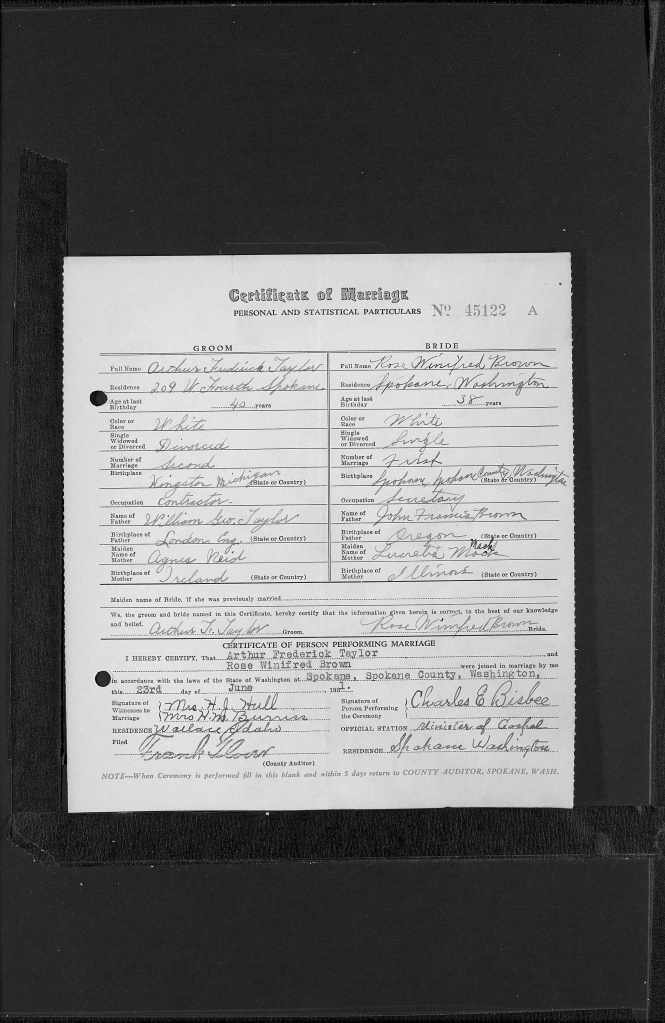 Certificate of Marriage
PERSONAL AND STATISTICAL PARTICULARS Nº 45122 A
GROOM BRIDE
Full Name Arthur Frederick Taylor Full Name Rose Winifred Brown
Residence 209 W Fourth Spokane Residence Spokane, Washington
Age at last Birthday 40 years Age at last Birthday 38 years
Color or Race White Color or Race White
Single Widowed or Divorced Divorced Single Widowed or Divorced Single
Number of Marriage Second Number of Marriage First
Birthplace Kingston Michigan (State or Country) Birthplace Spokane, Spokane County, Washington (State or Country)
Occupation Contractor. Occupation Secretary
Name of Father William Geo. Taylor Name of Father John Francis Brown
Birthplace of Father London Eng. (State or Country) Birthplace of Father Oregon (State or Country)
Maiden Name of Mother Agnes Reid Maiden Name of Mother Mock
Birthplace of Mother Ireland (State or Country) Birthplace of Mother Illinois (State or Country)
Maiden name of Bride, if she was previously married
We, the groom and bride named in this Certificate, hereby certify that the information given herein is correct, to the best of our knowledge
and belief. Arthur F. Taylor Groom. Rose Winifred Brown Bride.
CERTIFICATE OF PERSON PERFORMING MARRIAGE
I HEREBY CERTIFY, That Arthur Frederick Taylor and
Rose Winifred Brown were joined in marriage by me
in accordance with the laws of the State of Washington at Spokane, Spokane County, Washington,
this 23rd day of June
Signature of Witnesses to Marriage Mrs. H. J. Hull Signature of Person Performing the Ceremony Charles E Bisbee
Mrs H. M.
RESIDENCE Wallace Idaho OFFICIAL STATION Minister of Gospel
Filed Frank Glover RESIDENCE Spokane Washington
(County Auditor)
NOTE—When Ceremony is performed fill in this blank and within 5 days return to COUNTY AUDITOR, SPOKANE, WASH.